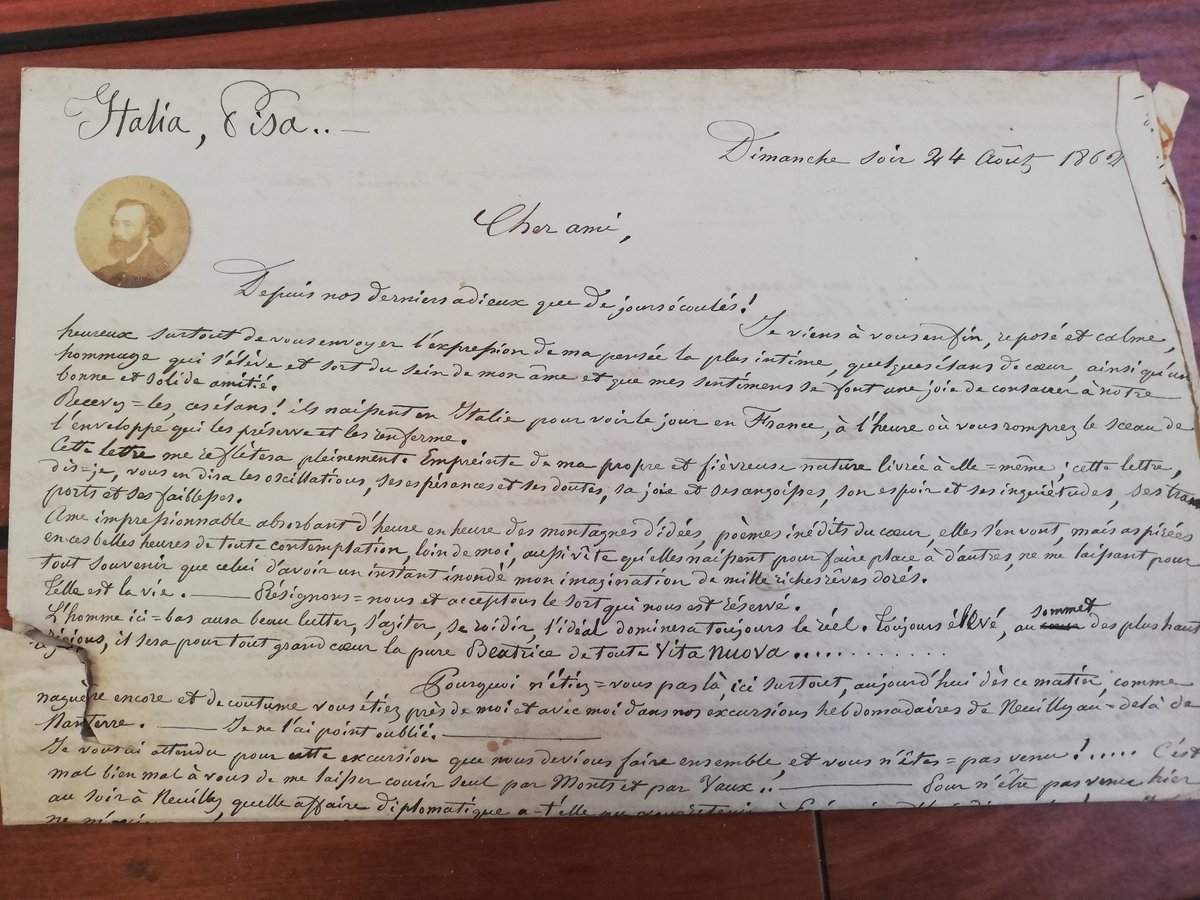 Italia, Pisa..—
Dimanche soir 24 Août, 1862
Cher ami,
Depuis nos derniers adieux que de jours écoulés!
Je viens à vous enfin, reposé et calme,
heureux surtout de vous envoyer l'expression de ma pensée la plus intime, quelques élans de cœur, ainsi qu'un
hommage qui s'élève et sort du sein de mon âme et que mes sentimens se font une joie de consacrer à notre
bonne et solide amitié.
Recevez=les, ces élans! ils naissent en Italie pour voir le jour en France, à l'heure où vous romprez le sceau de
l'enveloppe qui les préserve et les renferme.
Cette lettre me reflètera pleinement. Empreinte de ma propre et fièvreuse nature livrée à elle=même; cette lettre,
dis=je, vous en dira les oscillations, ses espérances et ses doutes, sa joie et ses angoisses, son espoir et ses inquiétudes, ses trans
ports et ses faiblesses.
Ame impressionnable absorbant d'heure en heure des montagnes d'idées, poèmes inédits du cœur, elles s'en vont, mais aspirées
en ces belles heures de toute contemplation, loin de moi, aussi vite qu'elles naissent pour faire place à d'autres, ne me laissant pour
tout souvenir que celui d'avoir un instant inondé mon imagination de mille riches rêves dorés.
Telle est la vie. — Résignons=nous et acceptons le sort qui nous est réservé.
L'homme ici=bas aura beau lutter, s'agiter, se roidir, l'idéal dominera toujours le réel. Toujours élevé, au sommet des plus haut
régions, il sera pour tout grand cœur la pure Beatrice de toute Vita Nuova..............
Pourquoi n'étiez=vous pas là ici surtout, aujourd'hui dès ce matin, comme
naguère encore et de coutume vous étiez près de moi et avec moi dans nos excursions hebdomadaires de Neuilly au=delà de
Nanterre. — Je ne l'ai point oublié. —
Je vous ai attendu pour cette excursion que nous devions faire ensemble, et vous n'êtes=pas venu!..... C'est
mal bien mal à vous de me laisser courir seul par Monts et par Vaux.. — Pour n'être pas venu hier
au soir à Neuilly, quelle affaire diplomatique a=t'elle pu